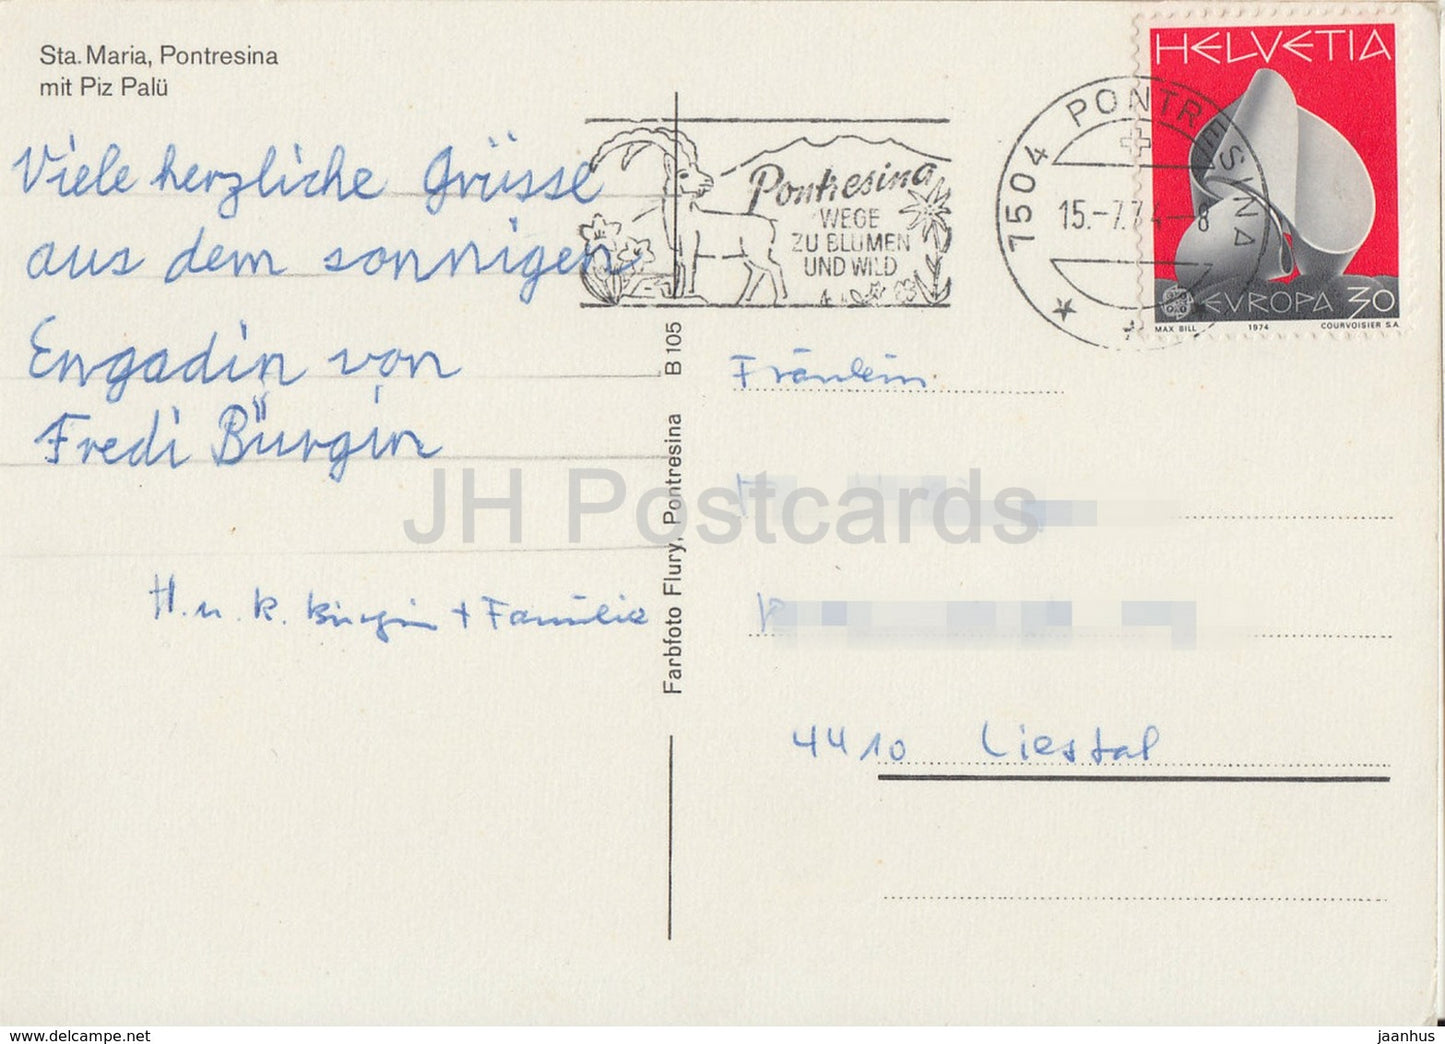 Sta. Maria, Pontresina
mit Piz Palü
Viele herzliche Grüsse
aus dem sonnigen
Engadin von
Fredi Bürgin
H. u. K. Bürgin + Familie
Pontresina
WEGE
ZU BLUMEN
UND WILD
7504 PONTRESINA
15.-7.74-8
HELVETIA
EVROPA 30
MAX BILL 1974 COURVOISIER S.A.
B 105
Farbfoto Flury, Pontresina
Fräulein
4410 Liestal
JH Postcards
www.delcampe.net
jaanhus